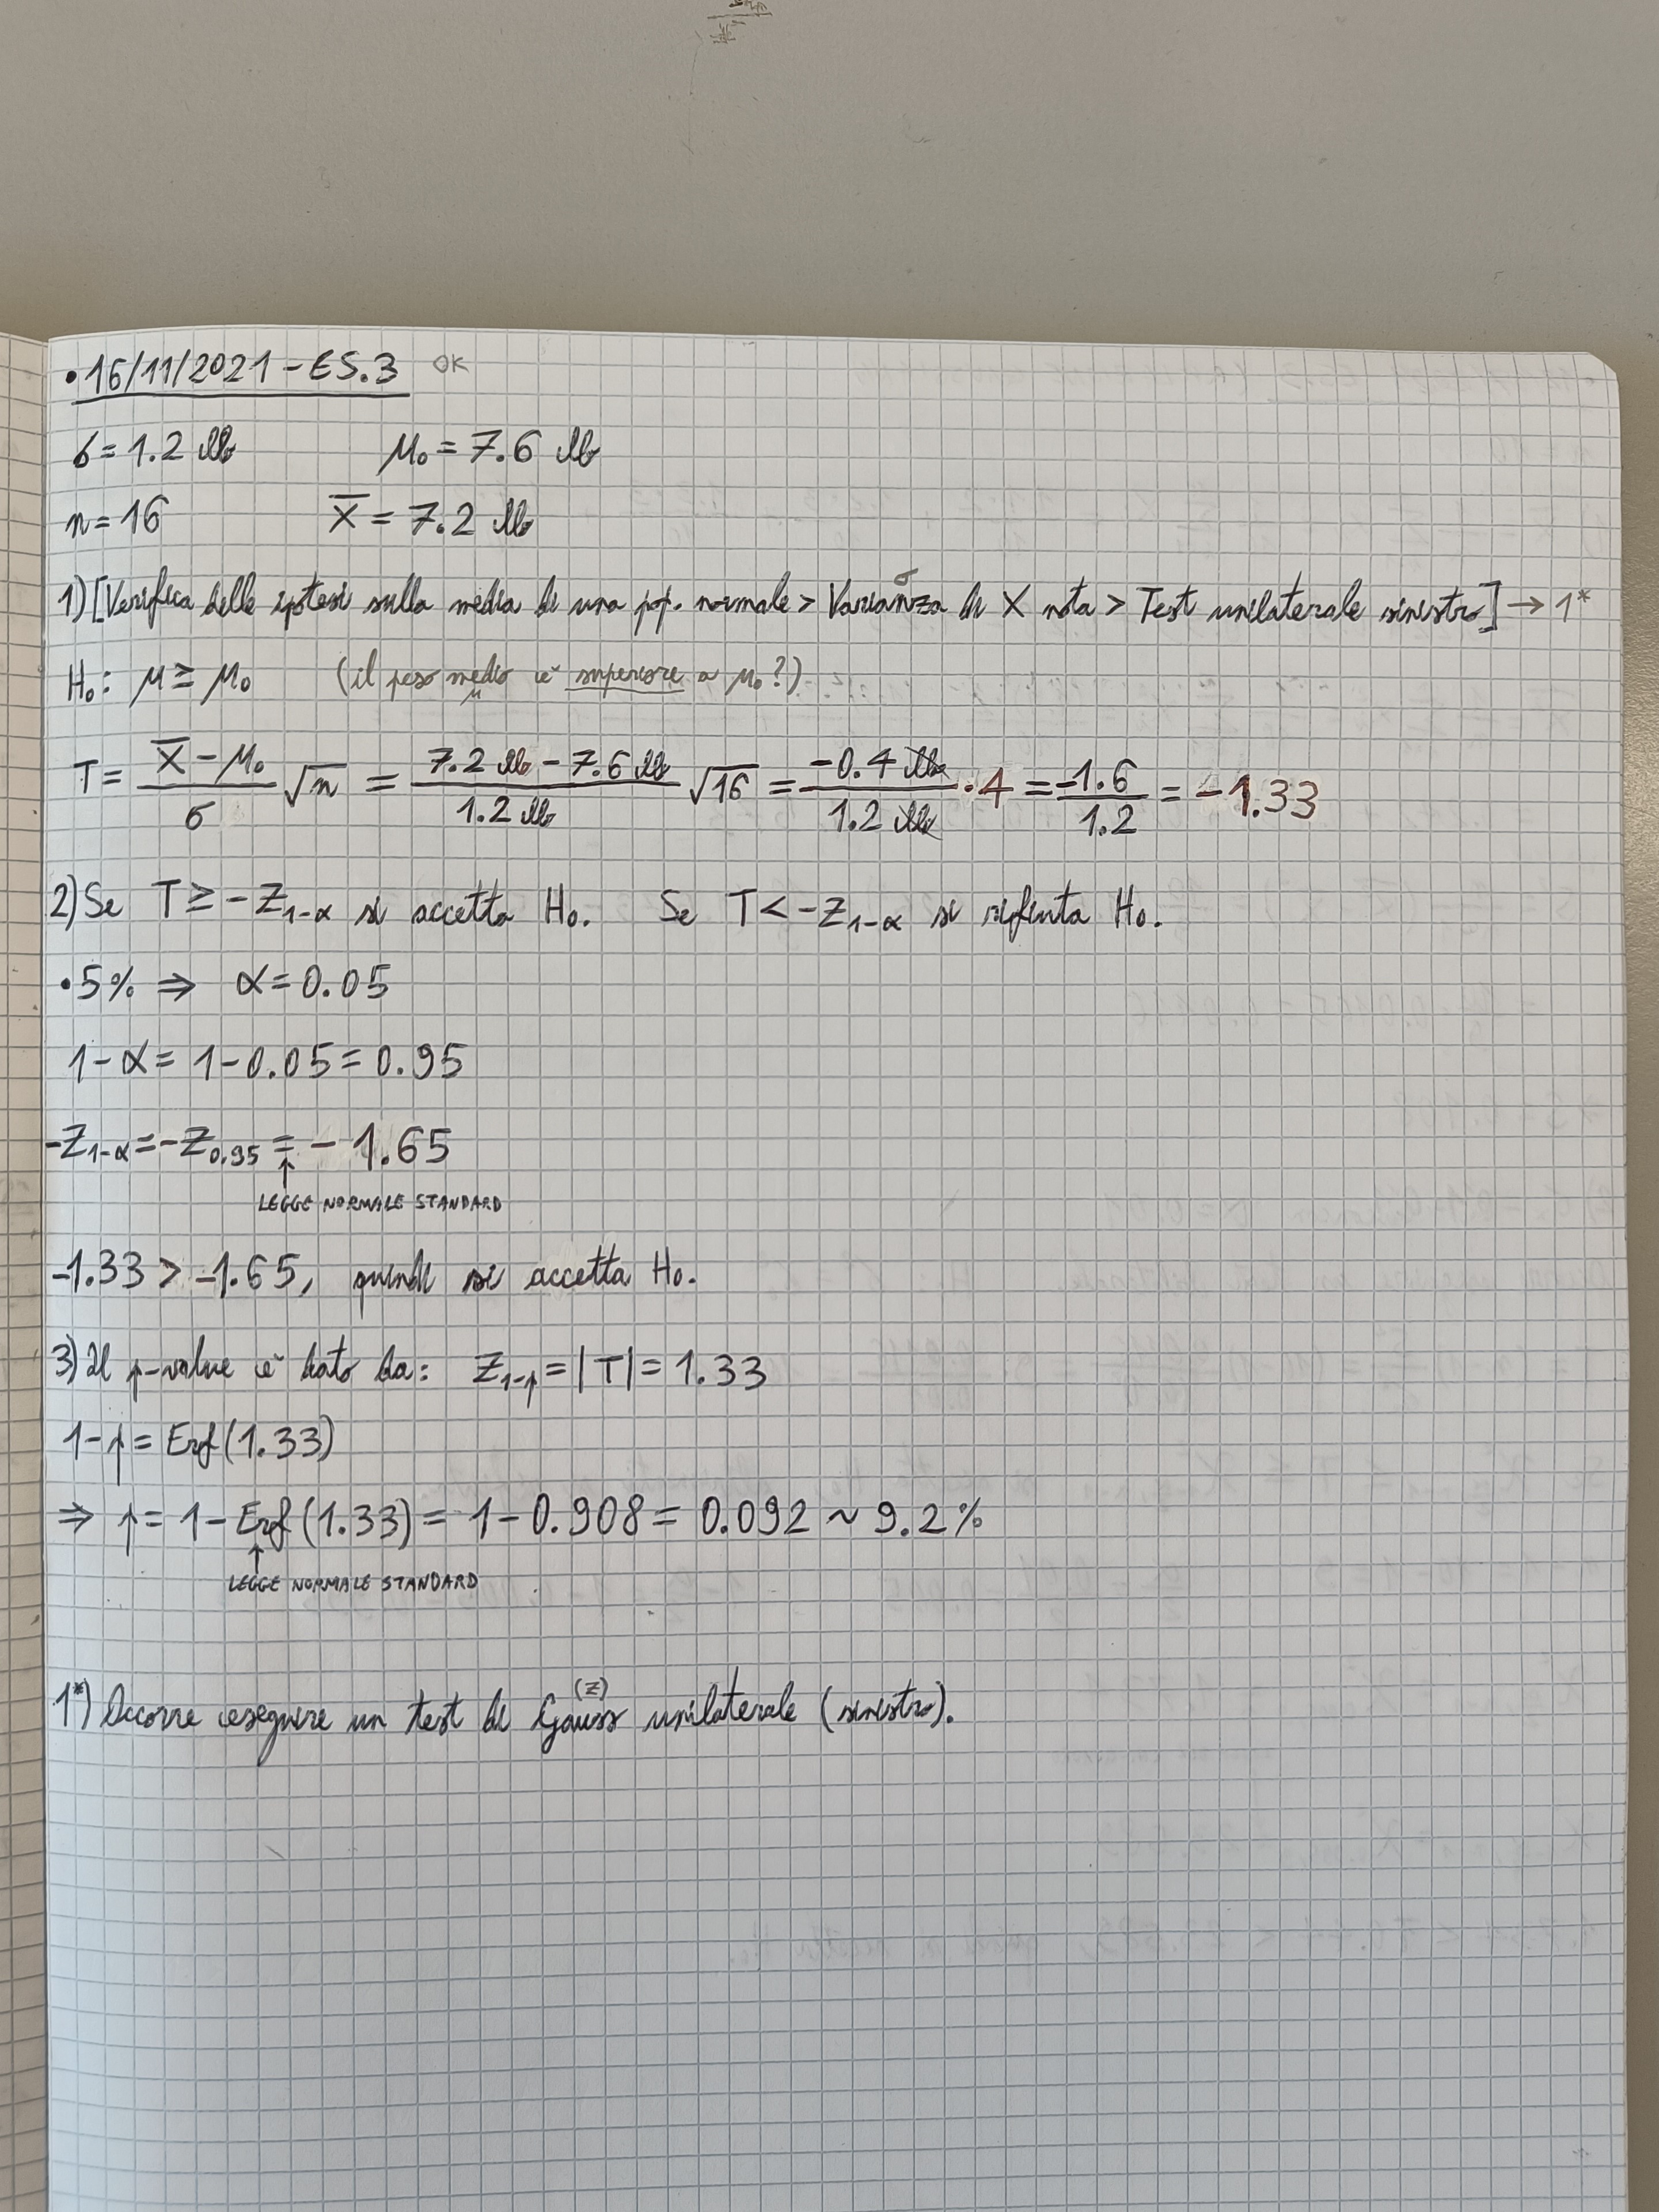 •16/11/2021 - ES.3 OK
σ = 1.2 lb μ₀ = 7.6 lb
n = 16 X̅ = 7.2 lb
1) [Verifica delle ipotesi sulla media di una pop. normale > Varianza σ di X nota > Test unilaterale sinistro] → 1*
H₀: μ ≥ μ₀ (il peso medio μ è superiore a μ₀?)
T = (X̅ - μ₀)/σ √n = (7.2 lb - 7.6 lb)/(1.2 lb) √16 = (-0.4 lb)/(1.2 lb) · 4 = -1.6/1.2 = -1.33
2) Se T ≥ -Z₁₋α si accetta H₀. Se T < -Z₁₋α si rifiuta H₀.
•5% ⇒ α = 0.05
1-α = 1-0.05 = 0.95
-Z₁₋α = -Z₀.₉₅ = -1.65
↑
LEGGE NORMALE STANDARD
-1.33 > -1.65, quindi si accetta H₀.
3) Il p-value è dato da: Z₁₋p = |T| = 1.33
1-p = Erf(1.33)
⇒ p = 1 - Erf(1.33) = 1 - 0.908 = 0.092 ~ 9.2%
↑
LEGGE NORMALE STANDARD
1*) Occorre eseguire un test di Gauss (Z) unilaterale (sinistro).